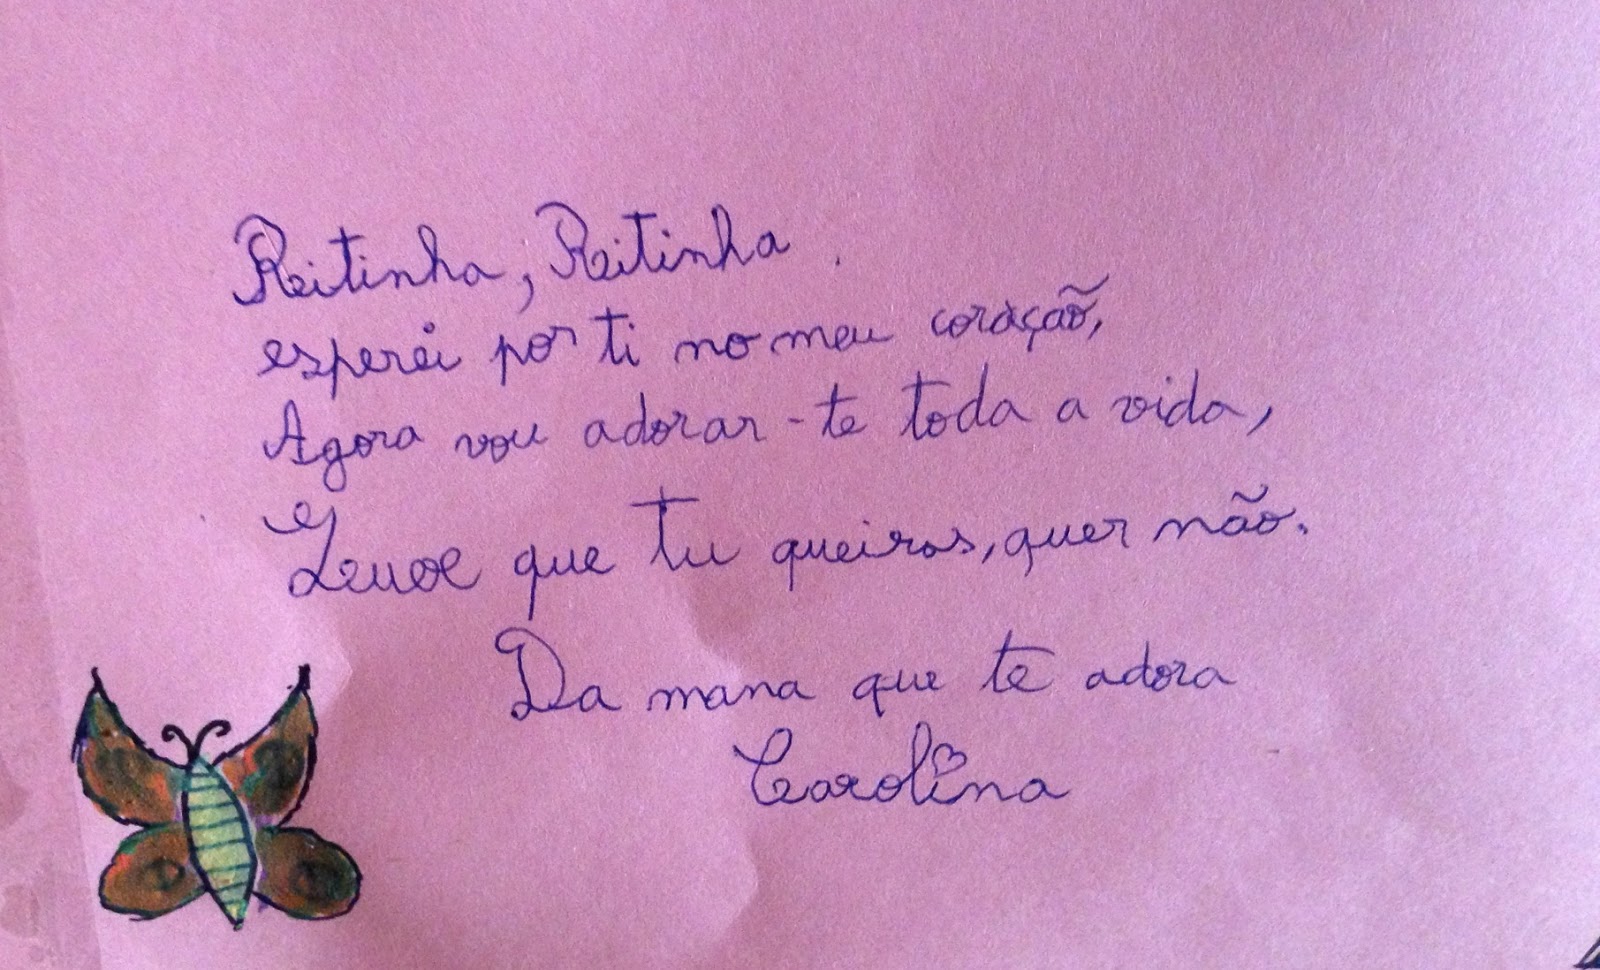 Ritinha, Ritinha.
esperei por ti no meu coração,
Agora vou adorar-te toda a vida,
Quer que tu queiras, quer não.
Da mana que te adora
Carolina